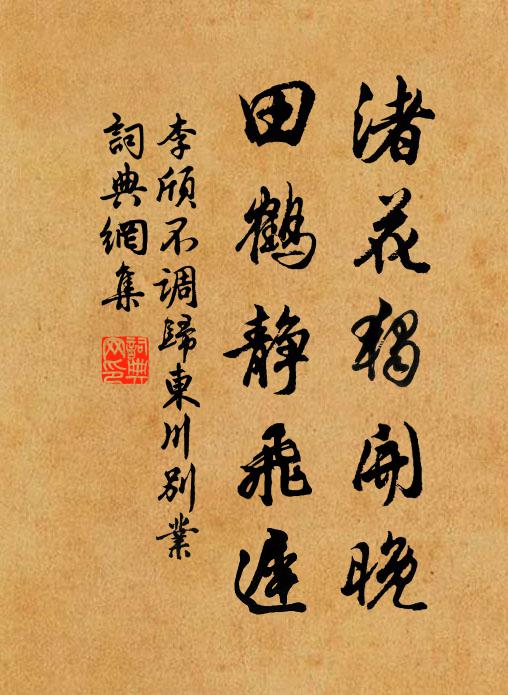 渚花獨開晚
田鶴静飛遲
李頎不調歸東川別業
詞典網集
詞典网印